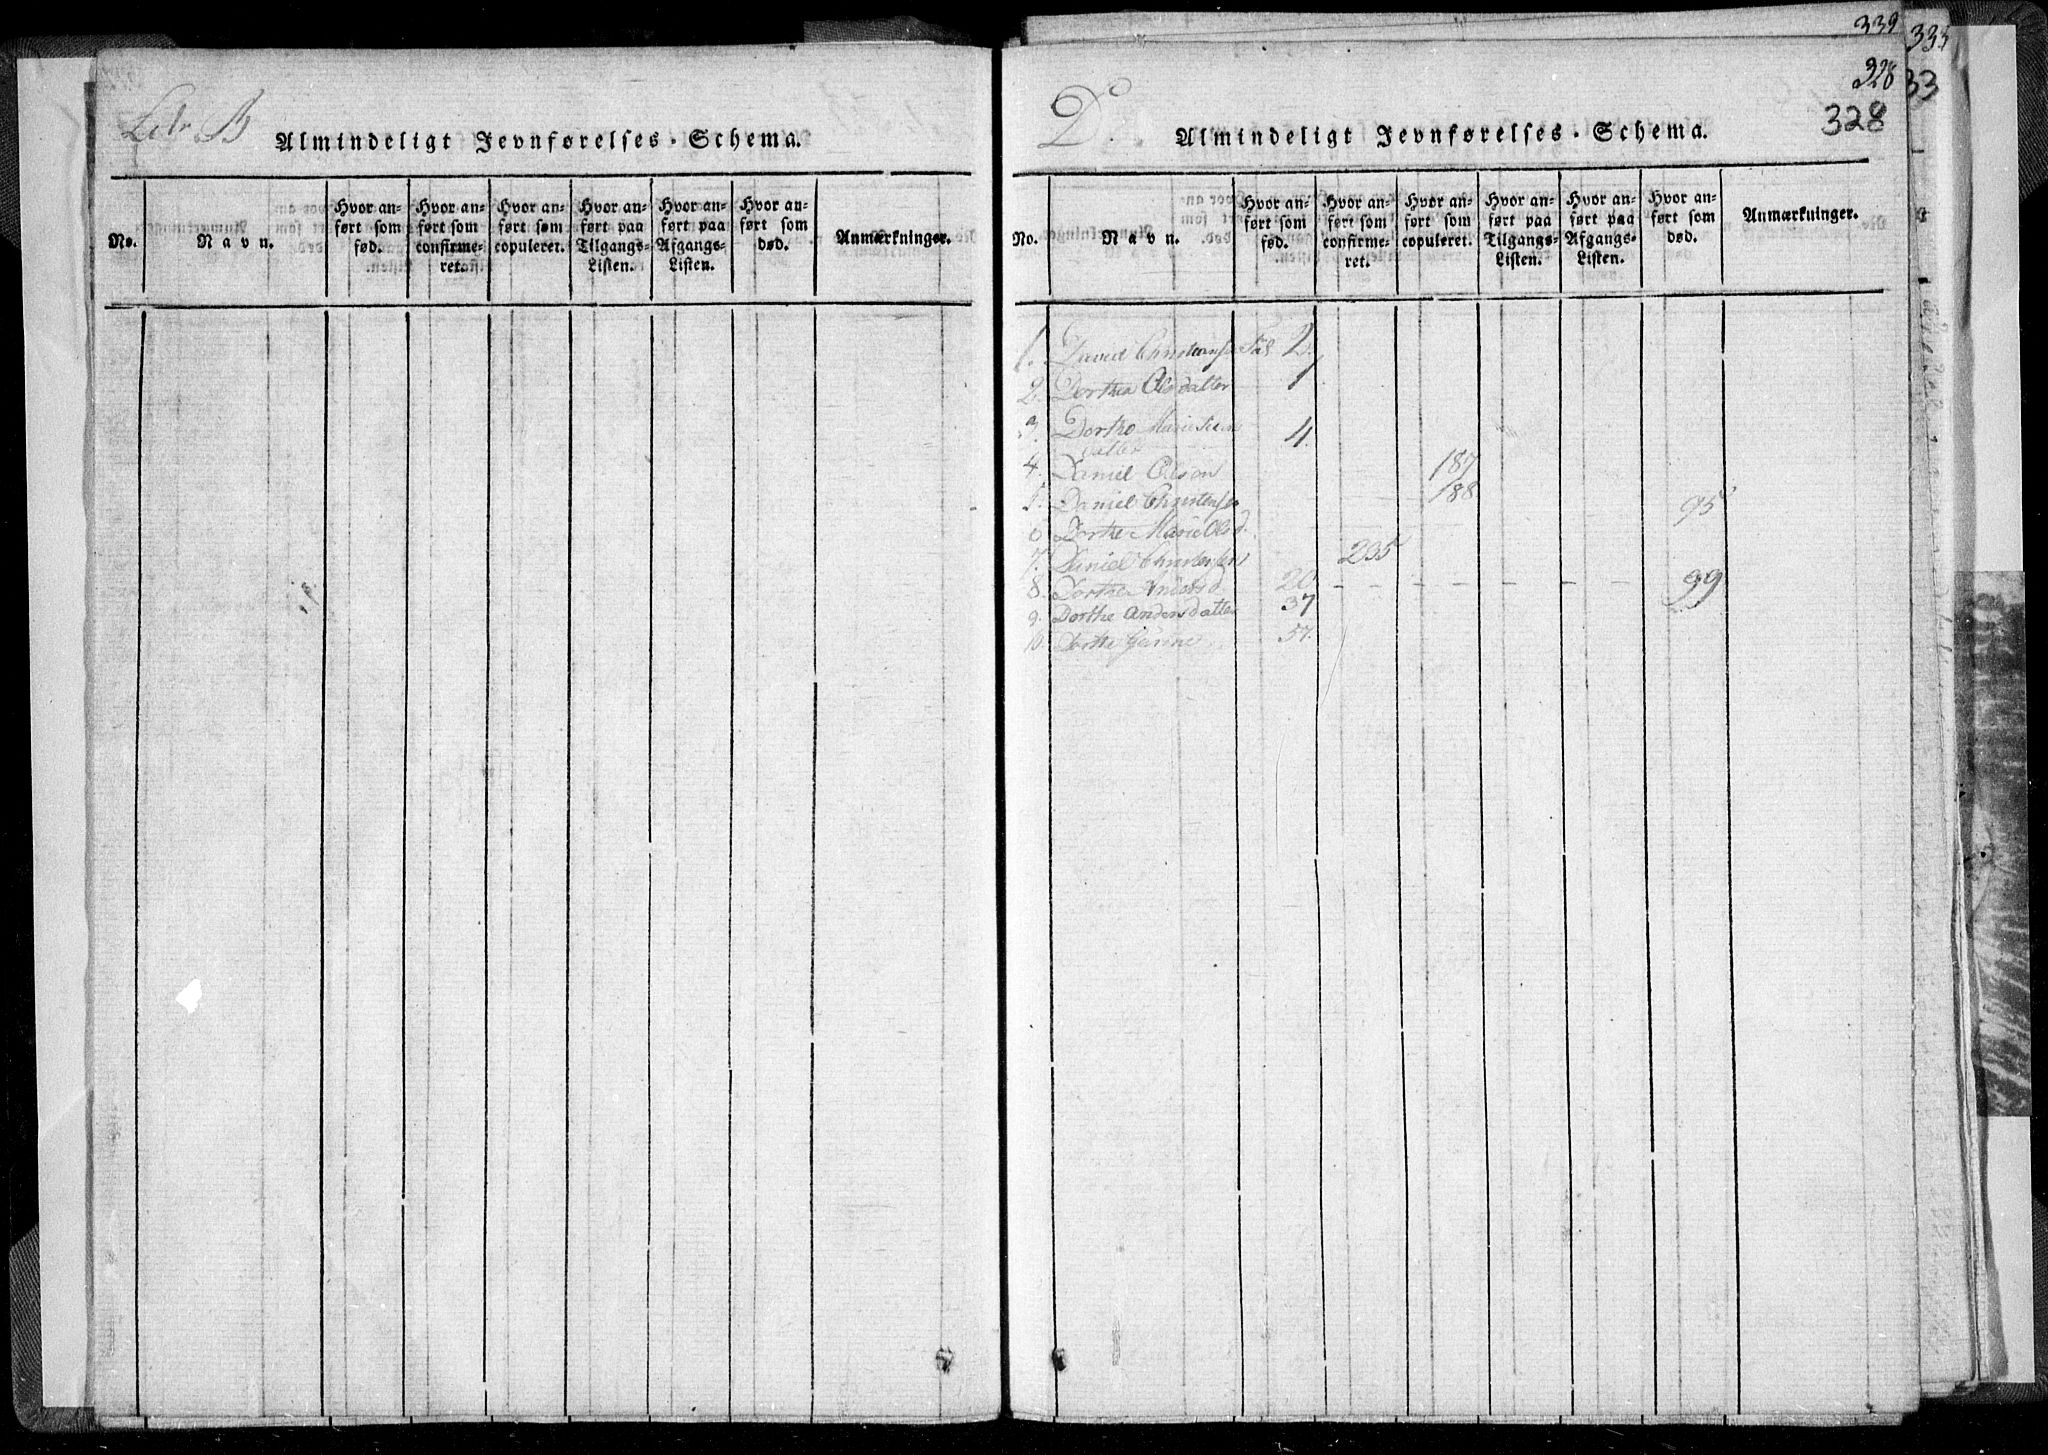 Litr B
Almindeligt Jevnførelses-Schema.
No.
Navn.
Hvor anført som fød.
Hvor anført som confirmeret.
Hvor anført som copuleret.
Hvor anført paa Tilgangs-Listen.
Hvor anført paa Afgangs-Listen.
Hvor anført som død.
Anmærkninger.
339
333
328
33
328
D.
Almindeligt Jevnførelses-Schema.
No.
Navn.
Hvor anført som fød.
Hvor anført som confirmeret.
Hvor anført som copuleret.
Hvor anført paa Tilgangs-Listen.
Hvor anført paa Afgangs-Listen.
Hvor anført som død.
Anmærkninger.
1. David 2.
2. Dorthea Olsdatter 1
3. Dorthe Marie
datter 4.
4. Daniel Olson 187
5. Daniel Christensen 188 95
6 Dorthe Marie Olsd.
7. Daniel Christensen 235
8. Dorthe Andersd. 20 - - - - 99
9. Dorthe Andersdatter 37
10. Dorthe 57.